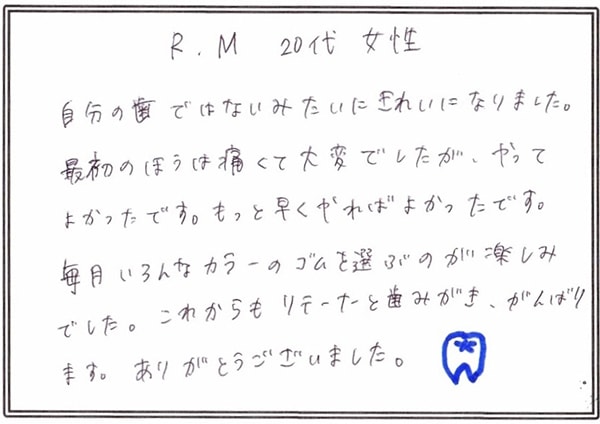 R.M 20代 女性
自分の歯ではないみたいにきれいになりました。
最初のほうは痛くて大変でしたが、やって
よかったです。もっと早くやればよかったです。
毎月いろんなカラーのゴムを選ぶのが楽しみ
でした。これからもリテーナーと歯みがき、がんばり
ます。ありがとうございました。